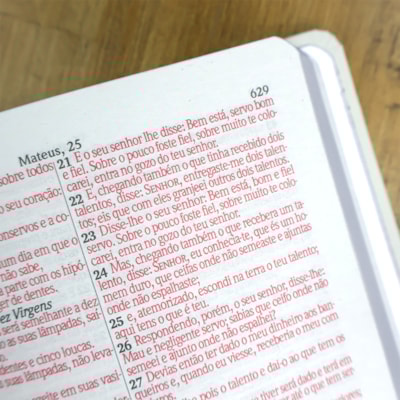 Mateus, 25
629
sobre todos
o seu coração:
onservos e a co-
um dia em que o
não sabe,
a parte com os hipó-
er de dentes.
ez Virgens
será semelhante a dez
as suas lâmpadas, saí-
dentes e cinco loucas.
suas lâmpadas, não leva-
eite em suas vasi-
21 E o seu senhor lhe disse: Bem está, servo bom
e fiel. Sobre o pouco foste fiel, sobre muito te colo-
carei, entra no gozo do teu senhor.
22 E, chegando também o que tinha recebido dois
talentos, disse: SENHOR, entregaste-me dois talen-
tos; eis que com eles granjeei outros dois talentos.
23 Disse-lhe o seu senhor: Bem está, bom e fiel
servo. Sobre o pouco foste fiel, sobre muito te colo-
carei, entra no gozo do teu senhor.
24 Mas, chegando também o que recebera um ta-
lento, disse: SENHOR, eu conhecia-te, que és um ho-
mem duro, que ceifas onde não semeaste e ajuntas
onde não espalhaste;
25 e, atemorizado, escondi na terra o teu talento;
aqui tens o que é teu.
26 Respondendo, porém, o seu senhor, disse-lhe:
Mau e negligente servo; sabias que ceifo onde não
semeei e ajunto onde não espalhei?
27 Devias então ter dado o meu dinheiro aos ban-
queiros e, quando eu viesse, receberia o meu com
pois o talento e dai-o ao que tem os
tiver será dado e terá em
até o que tem ser